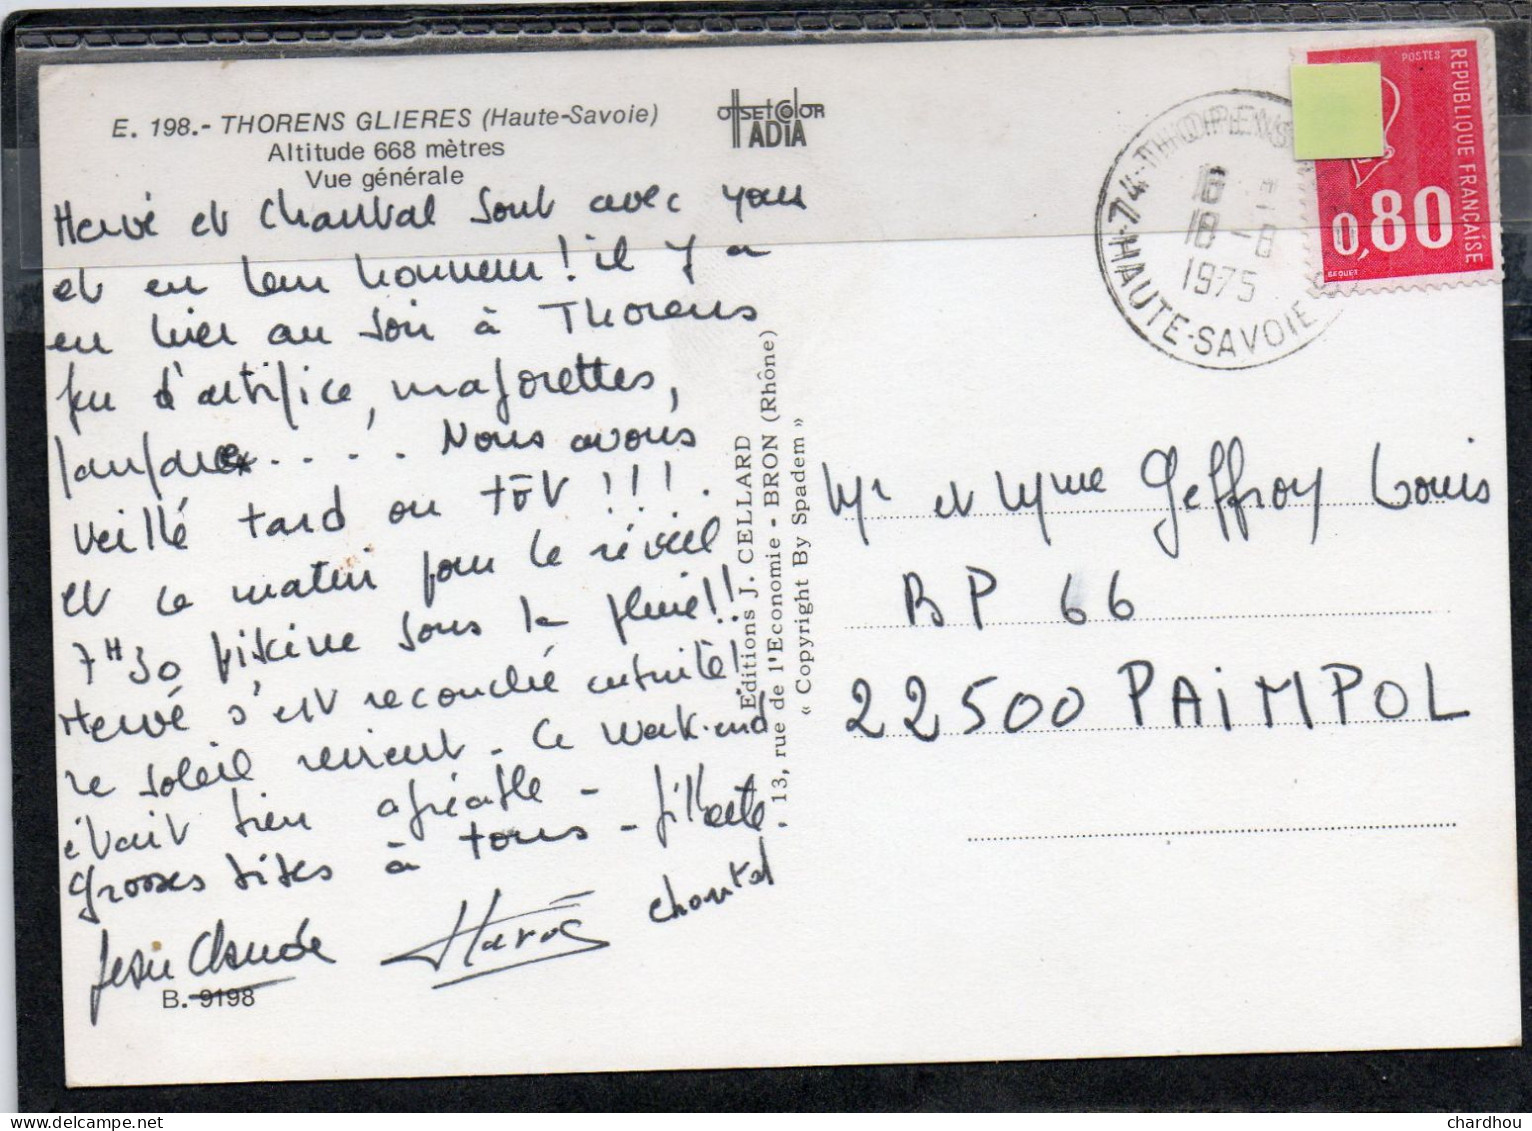 E. 198.- THORENS GLIERES (Haute-Savoie)
Altitude 668 mètres
Vue générale
OffSET COlOR
ADIA
Hervé et Chantal sont avec nous
et en leur honneur! il y a
eu hier au soir à Thorens
feu d'artifice, majorettes,
fanfare..... Nous avons
veillé tard ou tôt!!!.
et ce matin pour le réveil
7H30 piscine sous la pluie!!
Hervé s'est recouché ensuite!
le soleil revient. Ce week.end
était bien agréable -
Grosses bises à tous - Gilberte.
Jean Claude Hervé Chantal
B. 9198
Editions J. CELLARD
13, rue de l'Economie - BRON (Rhône)
« Copyright By Spadem »
74-THORENS
18-8
1975
HAUTE-SAVOIE
POSTES
REPUBLIQUE FRANÇAISE
0,80
BEQUET
Mr et Mme Geffroy Louis
BP 66
22500 PAIMPOL
delcampe.net
chardhou